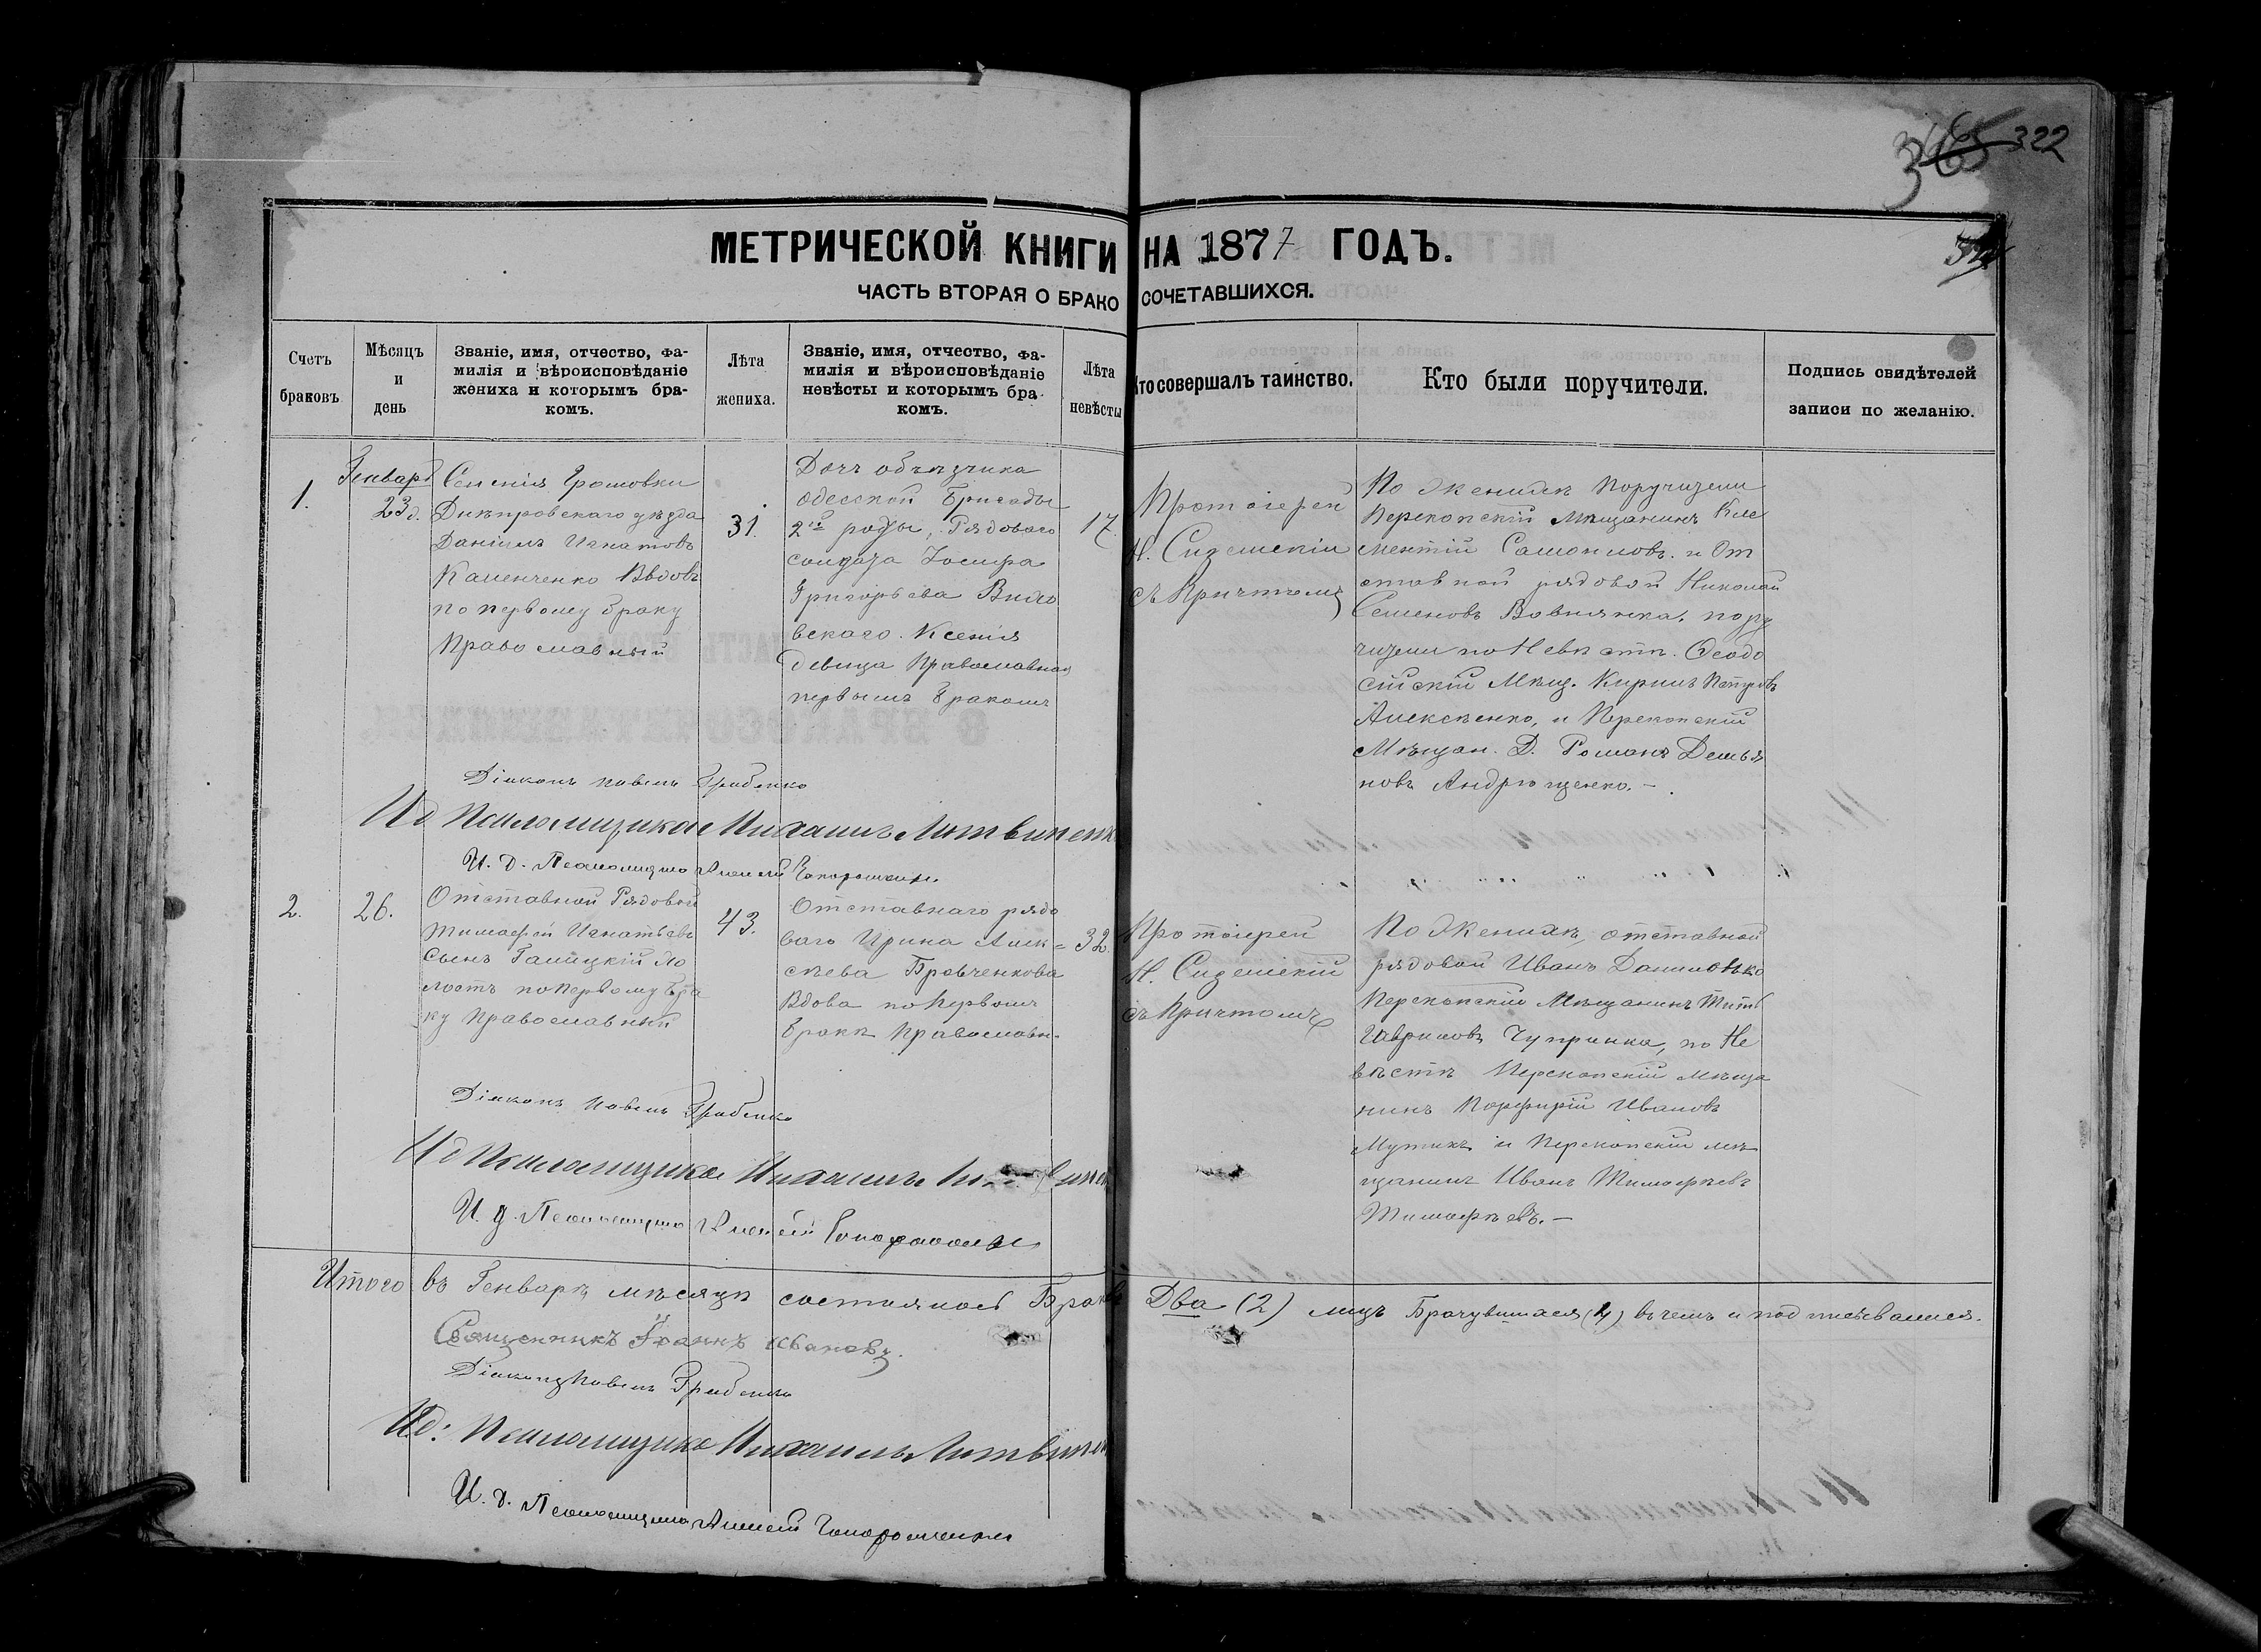 365 322
МЕТРИЧЕСКОЙ КНИГИ НА 1877 ГОДЪ.
ЧАСТЬ ВТОРАЯ О БРАКОСОЧЕТАВШИХСЯ.
Счетъ браковъ
Мѣсяцъ и день
Званіе, имя, отчество, фа-
милія и вѣроисповѣданіе
жениха и которымъ бра-
комъ.
Лѣта жениха.
Званіе, имя, отчество, фа-
милія и вѣроисповѣданіе
невѣсты и которымъ бра-
комъ.
Лѣта невѣсты
Кто совершалъ таинство.
Кто были поручители.
Подпись свидѣтелей
записи по желанію.
1.
Генварь
23 д.
Селенія Громовки
Днѣпровскаго уѣзда
Даніилъ Игнатовъ
Каменченко Вдовъ
по первому браку
Православный
31.
Дочь объѣзчика
Одесской Бригады
2й роты, Рядоваго
солдата Іосифа
Григорьева
вскаго. Ксенія
девица Православная
первымъ бракомъ
17.
Протоіерей
Н.
съ Причтомъ
По Женихѣ Поручители
Перекопскій Мѣщанинъ Кле
ментій Самойловъ. и От
ставной рядовой Николай
Семеновъ Вовнянка, пору
чители по Невѣстѣ. Ѳеодо
сійскій Мѣщ. Кирилъ Петровъ
Алексѣенко, и Перекопскій
Мѣщан. Д. Романъ Демья
новъ Андрющенко. –
Діаконъ Павелъ Грабенко
И д Псаломщика Михаилъ Литвиненк
И. д. Псаломщика Алексѣй
2.
26.
Отставной Рядовой
Тимофей Игнатьевъ
Сынъ Галицкій Хо
лостъ по первому бра
ку Православный
43.
Отставнаго рядо
ваго Ирина Алек-
сѣева Бровченкова
Вдова по Первомъ
бракѣ Православн.
32
Протоіерей
Н.
съ Причтомъ
По Женихѣ, отставной
рядовой Иванъ Данилонько
Перекопскій Мѣщанинъ Титъ
Гавриловъ Чупринка, по Не
вѣстѣ Перекопскій мѣща
нинъ Порфирій Ивановъ
Мутикъ и Перекопскій мѣ
щанинъ Иванъ Тимофѣевъ
Тимофѣевъ. –
Діаконъ Павелъ Грабенко
И д Псаломщика Михаилъ
И. д. Псаломщика Алексѣй
Итого въ Генварѣ мѣсяцѣ состоялось Браковъ Два (2) лицъ Брачувшихся (4) въ чемъ и подписываемся.
Священникъ Іоаннъ Ивановъ.
Діаконъ Павелъ Грабенко
И д: Псаломщика Михаилъ Литвинен
И. д. Псаломщика Алексѣй